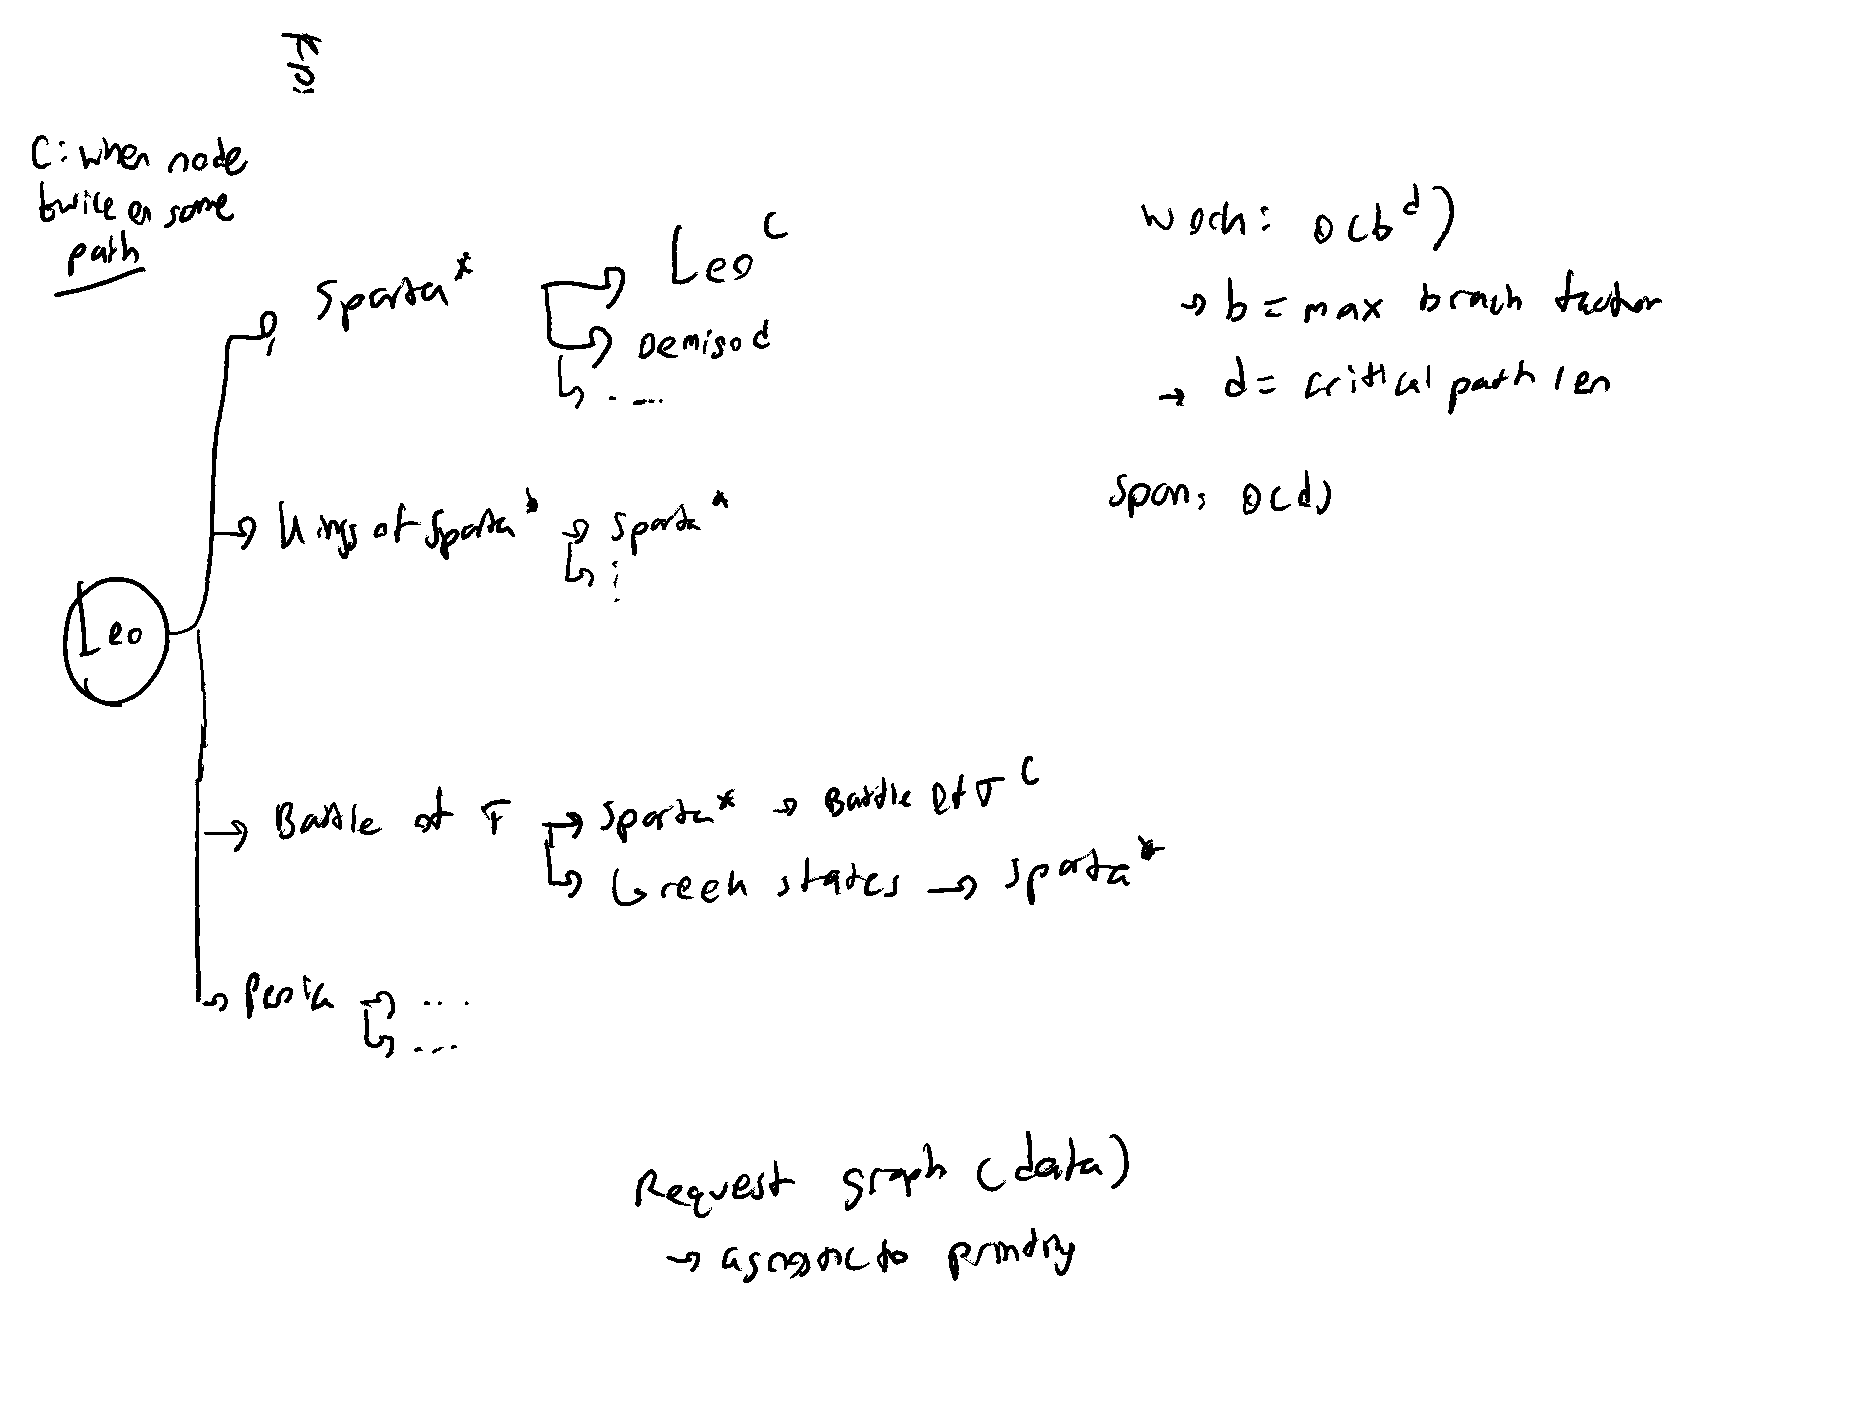 C: when node
twice on same
path
Sparta*
Leo C
Demigod
. ....
Kings of Sparta*
Sparta*
Leo
Battle of T
Sparta* → Battle of T C
Greek states → Sparta*
Persia
....
....
Work: O(b^d)
→ b = max branch factor
→ d = critical path len
Span: O(d)
Request graph (data)
→ agnostic to